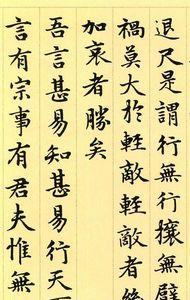 退尺是謂行無行攘無臂
禍莫大於輕敵輕敵者
加哀者勝矣
吾言甚易知甚易行天
言有宗事有君夫惟無